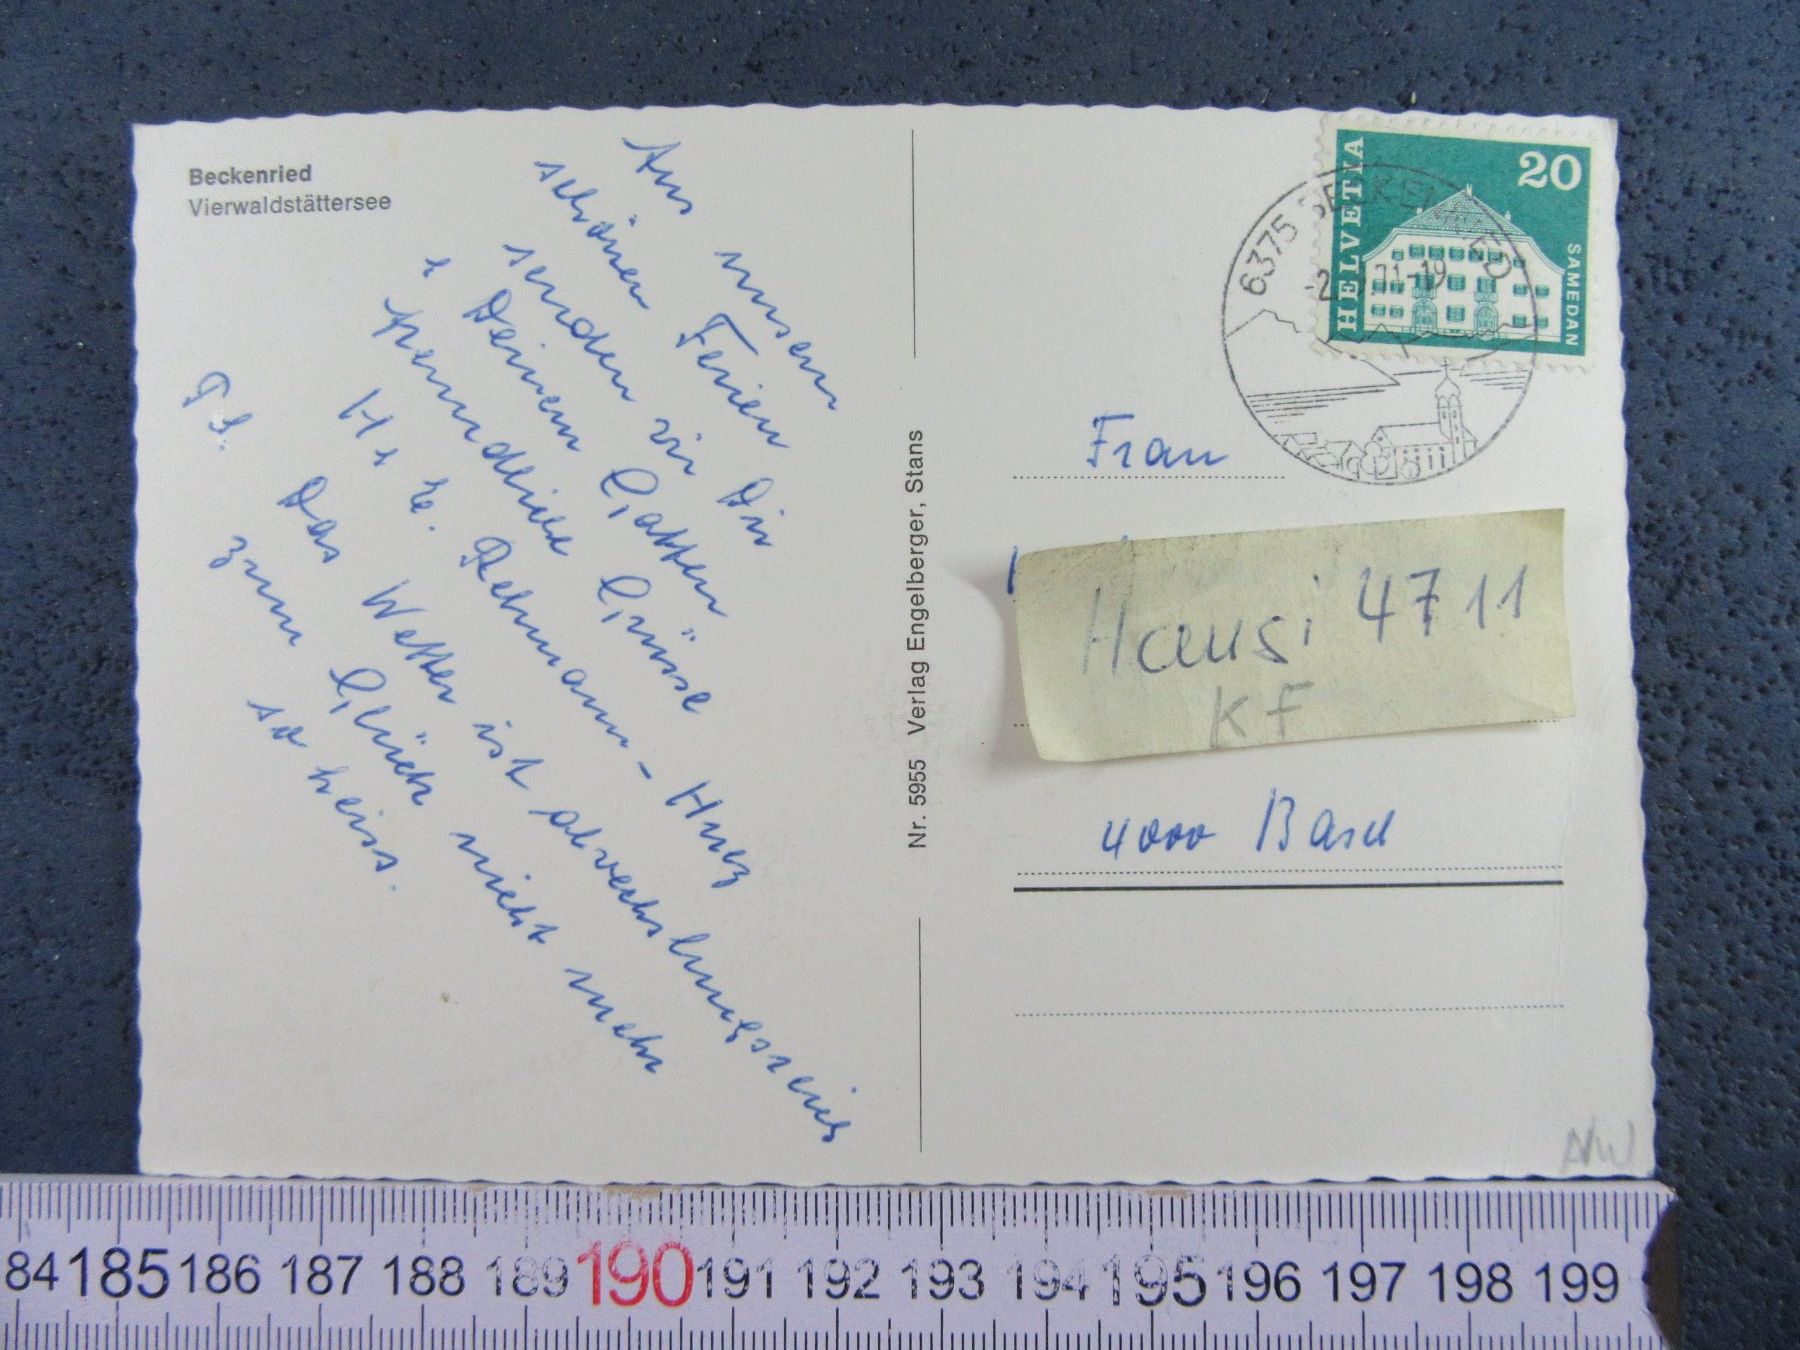 Beckenried
Vierwaldstättersee
Aus unsern
schönen Ferien
senden wir Dir
+ Deinem Gatten
freundliche Grüsse
H + E. Rehmann-Hurz
PS. Das Wetter ist abwechslungsreich
zum Glück nicht mehr
so heiss.
Nr. 5955 Verlag Engelberger, Stans
HELVETIA
20
SAMEDAN
6375 BECKENRIED
-2. .71-19
Frau
Hausi 4711
KF
4000 Basel
NW
84 185 186 187 188 189 190 191 192 193 194 195 196 197 198 199